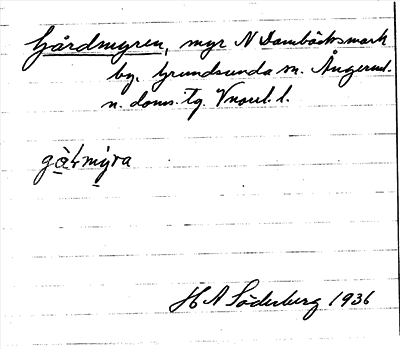 Gårdmyren, myr N Dombäcksmark
by. Grundsunda sn. Ångerml.
n. doms. Tg.
gårmyra
H A Söderberg 1936